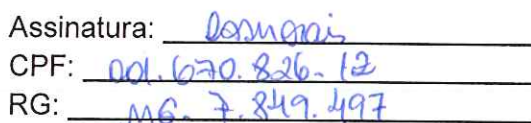 Assinatura:
CPF: 001.670.826-12
RG: MG. 7.849.497